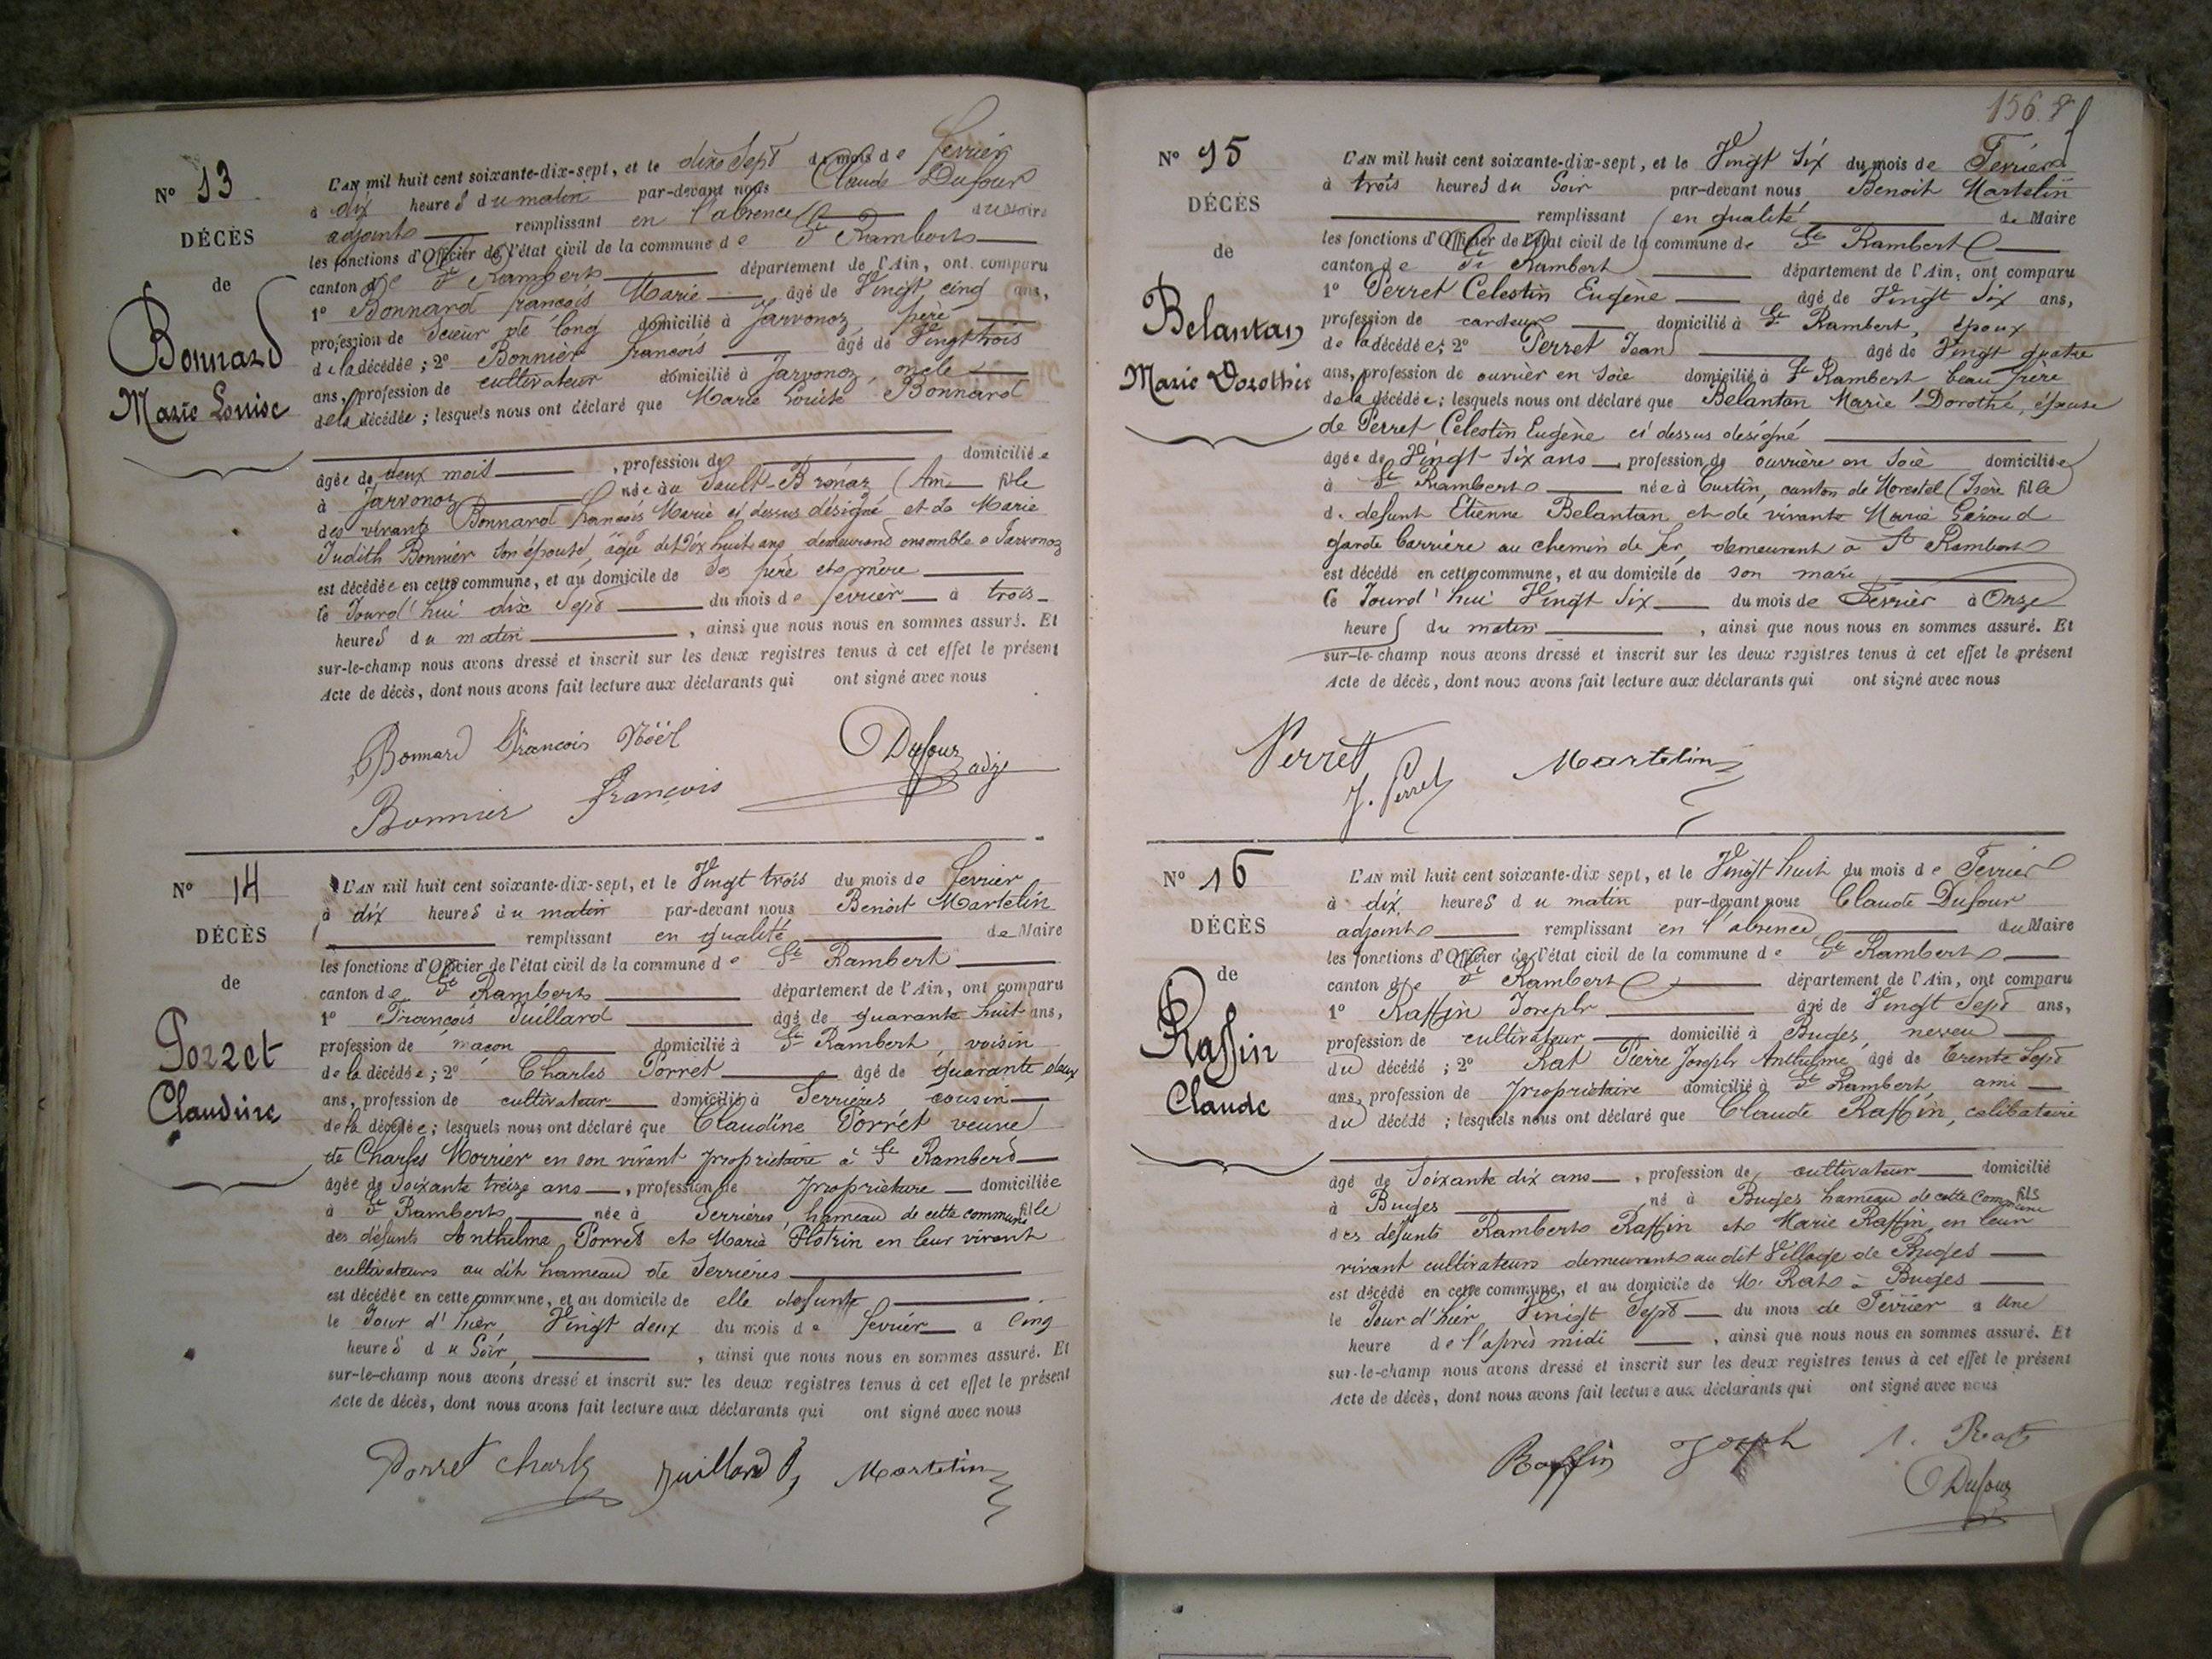 N° 13
DÉCÈS
de
Bonnard
Marie Louise
L'AN mil huit cent soixante-dix-sept, et le dix Sept du mois de fevrier
à dix heures du matin par-devant nous Claude Dufour
adjoint remplissant en l'absence du Maire
les fonctions d'Officier de l'état civil de la commune de St Rambert
canton de St Rambert département de l'Ain, ont comparu
1° Bonnard francois Marie âgé de Vingt cinq ans,
profession de Scieur de long domicilié à Javornoz, père
de la décédée; 2° Bonnier francois âgé de Vingt trois
ans, profession de cultivateur domicilié à Javornoz, oncle
de la décédée; lesquels nous ont déclaré que Marie Louise Bonnard
âgée de deux mois, profession de domiciliée
à Javornoz née à Sault-Brénaz (Ain fille
des vivants Bonnard francois Marie ci dessus désigné et de Marie
Judith Bonnier son épouse, âgée de Dix huit ans demeurand ensemble à Javornoz
est décédée en cette commune, et au domicile de ses père et mère
le Jourd'hui dix Sept du mois de fevrier à trois
heures du matin, ainsi que nous nous en sommes assuré. Et
sur-le-champ nous avons dressé et inscrit sur les deux registres tenus à cet effet le présent
Acte de décès, dont nous avons fait lecture aux déclarants qui ont signé avec nous
Bonnard francois Noël
Dufour adj
Bonnier françois
N° 14
DÉCÈS
de
Porret
Claudine
L'AN mil huit cent soixante-dix-sept, et le Vingt trois du mois de fevrier
à dix heures du matin par-devant nous Benoit Martelin
remplissant en qualité de Maire
les fonctions d'Officier de l'état civil de la commune de St Rambert
canton de St Rambert département de l'Ain, ont comparu
1° François Juillard âgé de quarante huit ans,
profession de maçon domicilié à St Rambert voisin
de la décédée; 2° Charles Porret âgé de quarante deux
ans, profession de cultivateur domicilié à Serrières cousin
de la décédée; lesquels nous ont déclaré que Claudine Porret veuve
de Charles Morrier en son vivant propriétaire à St Rambert
âgée de Soixante treize ans, profession de propriétaire domiciliée
à St Rambert née à Serrières, hameau de cette commune fille
des défunts Anthelme Porret et Marie Flotrin en leur vivant
cultivateurs au dit hameau de Serrières
est décédée en cette commune, et au domicile de elle defunte
le Jour d'hier, Vingt deux du mois de fevrier à Cinq
heures du Soir, ainsi que nous nous en sommes assuré. Et
sur-le-champ nous avons dressé et inscrit sur les deux registres tenus à cet effet le présent
Acte de décès, dont nous avons fait lecture aux déclarants qui ont signé avec nous
Porret Charles Juillard Martelin
156
N° 15
DÉCÈS
de
Belantan
Marie Dorothée
L'AN mil huit cent soixante-dix-sept, et le Vingt Six du mois de Fevrier
à trois heures du Soir par-devant nous Benoit Martelin
remplissant en qualité de Maire
les fonctions d'Officier de l'état civil de la commune de St Rambert
canton de St Rambert département de l'Ain, ont comparu
1° Perret Celestin Eugène âgé de Vingt Six ans,
profession de cardeur domicilié à St Rambert, époux
de la décédée; 2° Perret Jean âgé de Vingt quatre
ans, profession de ouvrier en Soie domicilié à St Rambert beau frère
de la décédée; lesquels nous ont déclaré que Belantan Marie Dorothé, épouse
de Perret Celestin Eugène ci dessus designé
âgée de Vingt Six ans, profession de ouvrière en Soie domiciliée
à St Rambert née à Curtin, canton de Morestel (Isère fille
de defunt Etienne Belantan et de vivante Marie Géroud
garde barrière au chemin de fer, demeurent à St Rambert
est décédé en cette commune, et au domicile de son mari
le Jourd'hui Vingt Six du mois de Fevrier à Onze
heures du matin, ainsi que nous nous en sommes assuré. Et
sur-le-champ nous avons dressé et inscrit sur les deux registres tenus à cet effet le présent
Acte de décès, dont nous avons fait lecture aux déclarants qui ont signé avec nous
Perret
J. Perret
Martelin
N° 16
DÉCÈS
de
Raffin
Claude
L'AN mil huit cent soixante-dix-sept, et le Vingt huit du mois de Fevrier
à dix heures du matin par-devant nous Claude Dufour
adjoint remplissant en l'absence du Maire
les fonctions d'Officier de l'état civil de la commune de St Rambert
canton de St Rambert département de l'Ain, ont comparu
1° Raffin Joseph âgé de Vingt Sept ans,
profession de cultivateur domicilié à Buges, neveu
du décédé; 2° Rat Pierre Joseph Anthelme, âgé de trente Sept
ans, profession de propriétaire domicilié à St Rambert, ami
du décédé; lesquels nous ont déclaré que Claude Raffin, celibataire
âgé de Soixante dix ans, profession de cultivateur domicilié
à Buges né à Buges hameau de cette commune fils
des défunts Rambert Raffin et Marie Raffin, en leur
vivant cultivateurs demeurant au dit Village de Buges
est décédé en cette commune, et au domicile de M. Rat à Buges
le Jour d'hier Vingt Sept du mois de Fevrier à Une
heure de l'après midi, ainsi que nous nous en sommes assuré. Et
sur-le-champ nous avons dressé et inscrit sur les deux registres tenus à cet effet le présent
Acte de décès, dont nous avons fait lecture aux déclarants qui ont signé avec nous
Raffin Joseph Rat
Dufour